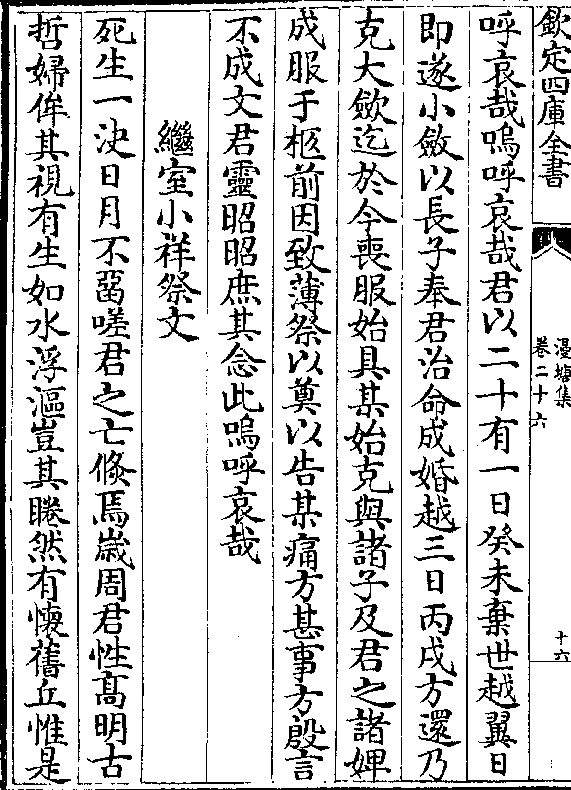 欽定四庫全書
漫塘集
卷二十六
十六
呼哀哉嗚呼哀哉君以二十有一日癸未棄世越翼日
即遂小斂以長子奉君治命成婚越三日丙戌方還乃
克大斂迄於今喪服始具某始克與諸子及君之諸婢
成服于柩前因致薄祭以奠以告某痛方甚事方殷言
不成文君靈昭昭庶其念此嗚呼哀哉
繼室小祥祭文
死生一決日月不啚嗟君之亡倐焉歳周君性髙明古
哲婦侔其視有生如水浮漚豈其睠然有懷舊丘惟是